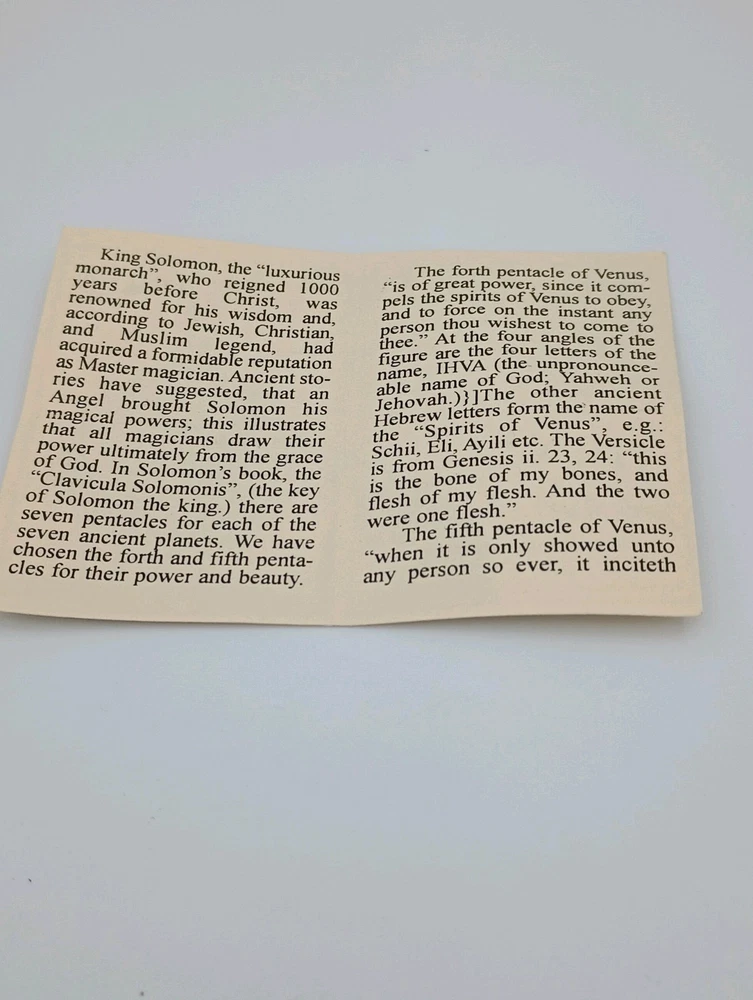 King Solomon, the “luxurious
monarch”, who reigned 1000
years before Christ, was
renowned for his wisdom and,
according to Jewish, Christian,
and Muslim legend, had
acquired a formidable reputation
as Master magician. Ancient sto-
ries have suggested, that an
Angel brought Solomon his
magical powers; this illustrates
that all magicians draw their
power ultimately from the grace
of God. In Solomon’s book, the
“Clavicula Solomonis”, (the key
of Solomon the king.) there are
seven pentacles for each of the
seven ancient planets. We have
chosen the forth and fifth penta-
cles for their power and beauty.
The forth pentacle of Venus,
“is of great power, since it com-
pels the spirits of Venus to obey,
and to force on the instant any
person thou wishest to come to
thee.” At the four angles of the
figure are the four letters of the
name, IHVA (the unpronounce-
able name of God; Yahweh or
Jehovah.)}]The other ancient
Hebrew letters form the name of
the “Spirits of Venus”, e.g.:
Schii, Eli, Ayili etc. The Versicle
is from Genesis ii. 23, 24: “this
is the bone of my bones, and
flesh of my flesh. And the two
were one flesh.”
The fifth pentacle of Venus,
“when it is only showed unto
any person so ever, it inciteth